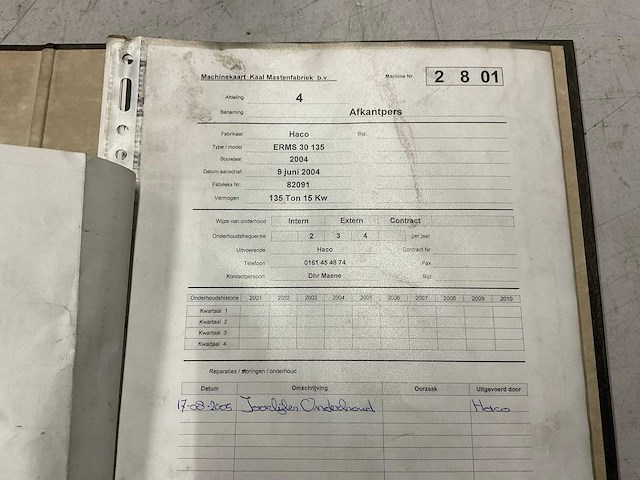 Machinekaart Kaal Mastenfabriek b.v. Machine Nr. 2 8 01
Afdeling 4
Benaming Afkantpers
Fabrikaat Haco Bijz.
Type / model ERMS 30 135
Bouwjaar 2004
Datum aanschaf 9 juni 2004
Fabrieks Nr. 82091
Vermogen 135 Ton 15 Kw
Wijze van onderhoud Intern Extern Contract
Onderhoudsfrequentie 2 3 4 per jaar
Uitvoerende Haco Contract Nr
Telefoon 0161 45 48 74 Fax
Kontactpersoon Dhr Maene Bijz.
Onderhoudshistorie 2001 2002 2003 2004 2005 2006 2007 2008 2009 2010
Kwartaal 1
Kwartaal 2
Kwartaal 3
Kwartaal 4
Reparaties / storingen / onderhoud
Datum Omschrijving Oorzaak Uitgevoerd door
17-08-2005 Jaarlijks Onderhoud Haco